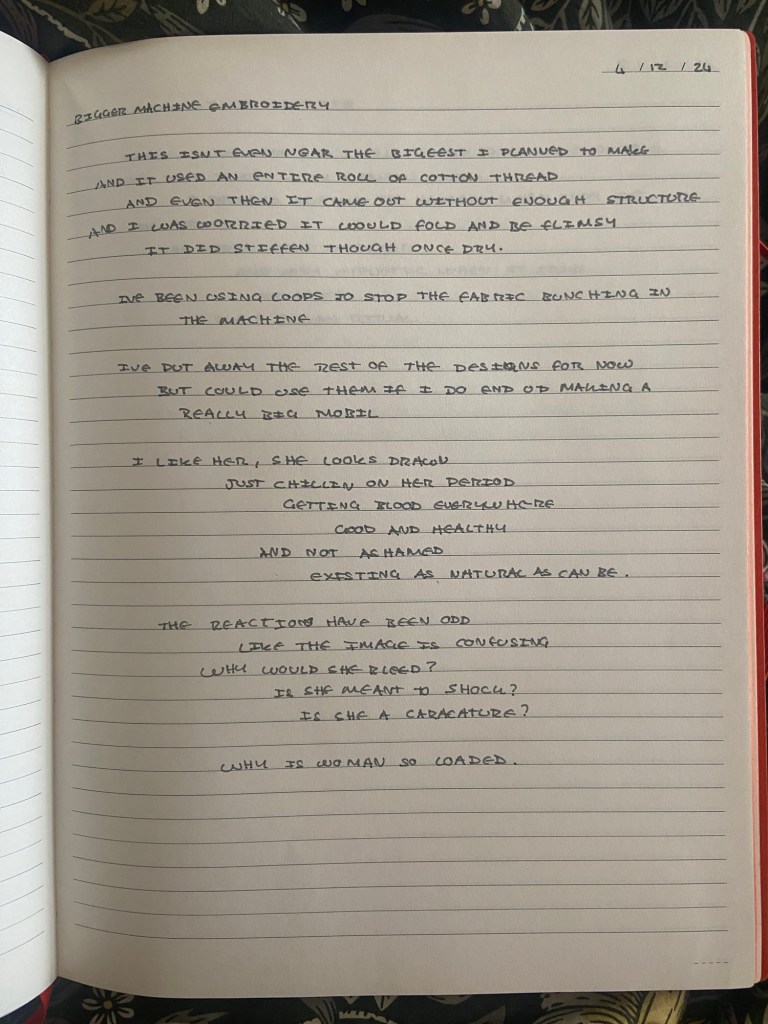 4 / 12 / 24
BIGGER MACHINE EMBROIDERY
THIS ISNT EVEN NEAR THE BIGGEST I PLANNED TO MAKE
AND IT USED AN ENTIRE ROLL OF COTTON THREAD
AND EVEN THEN IT CAME OUT WITHOUT ENOUGH STRUCTURE
AND I WAS WORRIED IT WOULD FOLD AND BE FLIMSY
IT DID STIFFEN THOUGH ONCE DRY.
IVE BEEN USING LOOPS TO STOP THE FABRIC BUNCHING IN
THE MACHINE
IVE PUT AWAY THE REST OF THE DESIGNS FOR NOW
BUT COULD USE THEM IF I DO END UP MAKING A
REALLY BIG MOBIL
I LIKE HER, SHE LOOKS
JUST CHILLIN ON HER PERIOD
GETTING BLOOD EVERYWHERE
GOOD AND HEALTHY
AND NOT ASHAMED
EXISTING AS NATURAL AS CAN BE.
THE REACTIONS HAVE BEEN ODD
LIKE THE IMAGE IS CONFUSING
WHY WOULD SHE BLEED?
IS SHE MEANT TO SHOCK?
IS SHE A CARACATURE?
WHY IS WOMAN SO LOADED.